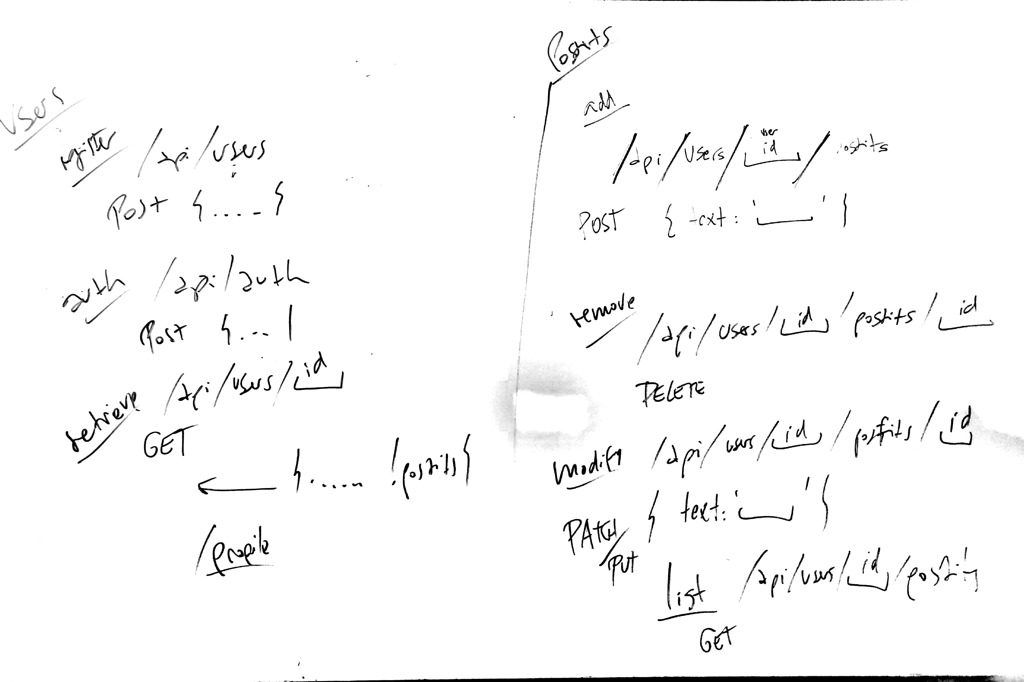 Users
register /api/users
Post {.....}
auth /api/auth
Post {...}
retrieve /api/users/id
GET
← {...... !postits}
/profile
Postits
add
/api/users/user id/postits
POST { text: '___' }
remove
/api/users/id/postits/id
DELETE
modify /api/users/id/postits/id
PATCH { text: '___' }
/PUT
list /api/users/id/postits
GET